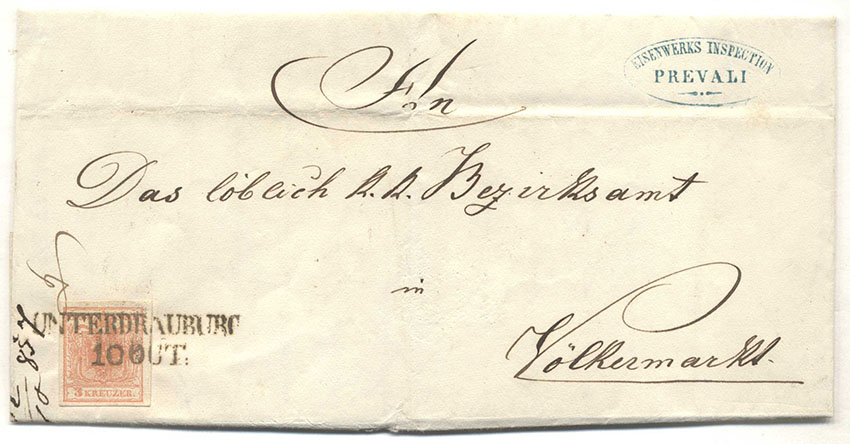 EISENWERKS INSPECTION
PREVALI
An
Das löblich k.k. Bezirksamt
in
Völkermarkt.
UNTERDRAUBURG
10 OCT.
3 KREUZER.